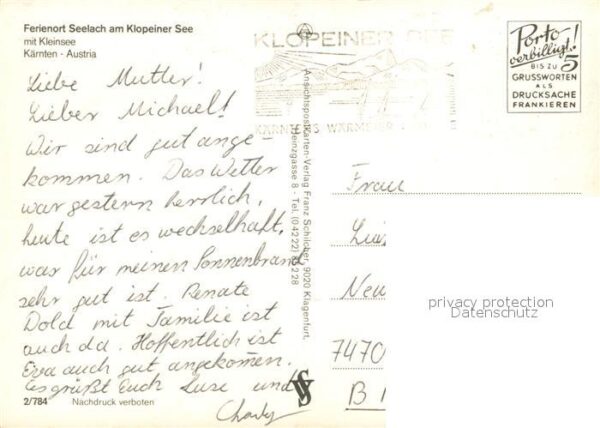 Ferienort Seelach am Klopeiner See
mit Kleinsee
Kärnten - Austria
Liebe Mutter!
Lieber Michael!
Wir sind gut ange-
kommen. Das Wetter
war gestern herrlich,
heute ist es wechselhaft,
was für meinen Sonnenbrand
sehr gut ist. Renate
Dold mit Familie ist
auch da. Hoffentlich ist
Eva auch gut angekommen.
Es grüßt Euch Luse und
Charly
2/784 Nachdruck verboten
Ansichtspostkarten-Verlag Franz Schilcher, 9020 Klagenfurt,
Heinzgasse 8 - Tel. (04222)
KLOPEINER SEE
KÄRNTENS WÄRMSTER
Porto
verbilligt!
BIS ZU 5
GRUSSWORTEN
ALS
DRUCKSACHE
FRANKIEREN
Frau
Neu
7470
privacy protection
Datenschutz